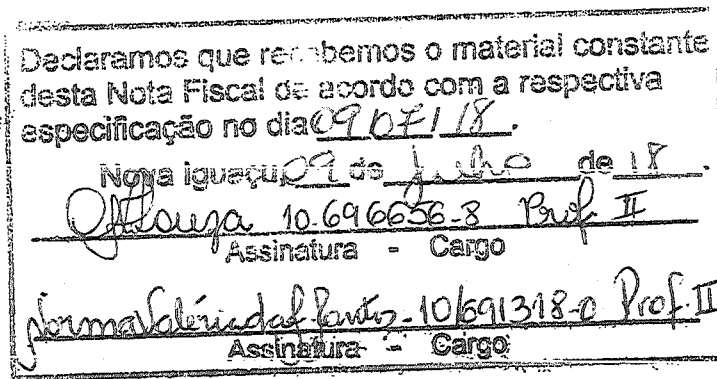 Declaramos que recebemos o material constante
desta Nota Fiscal de acordo com a respectiva
especificação no dia 09/07/18.
Nova Iguaçu, 09 de Julho de 18.
Souza 10-696656-8 Prof. II
Assinatura - Cargo
Norma Valéria da Santos - 10/691318-0 Prof. II
Assinatura - Cargo